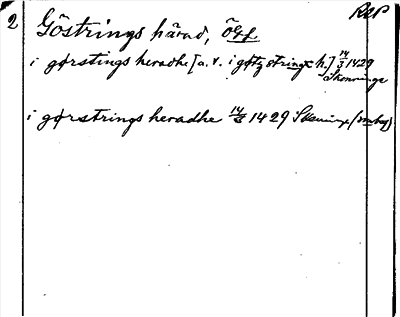 RAP
2 Göstrings härad, Ögl
i gørstings heradhe [a. v. i gøtz strings h.] 14/3 1429
Skenninge
i gørstrings heradhe 14/3 1429 Skeninx (vitbq)